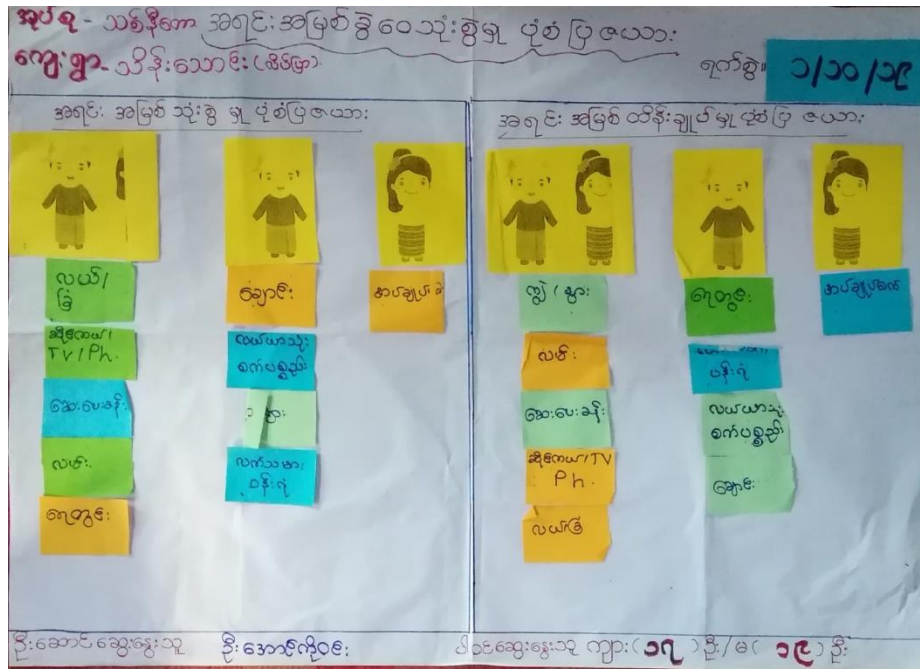 အုပ်စု - သစ်နီတော အရင်းအမြစ်ခွဲဝေသုံးစွဲမှု ပုံစံပြဇယား
ကျေးရွာ - သိန်းသောင်း (လိပ်ပြာ)
ရက်စွဲ။ ၁/၁၀/၁၉
အရင်း အမြစ် သုံးစွဲ မှု ပုံစံပြဇယား
လယ်/
ခြံ
ဆိုင်ကယ်/
TV/Ph.
ဆေးပေးခန်း
လမ်း
ရေတွင်း
ချောင်း
လယ်ယာသုံး
စက်ပစ္စည်း
နွား
လက်သမား/
ပန်းရံ
အပ်ချုပ်
အရင်း အမြစ် ထိန်းချုပ်မှု ပုံစံပြ ဇယား
ကျွဲ / နွား
လမ်း
ဆေးပေးခန်း
ဆိုင်ကယ်/TV
Ph.
လယ်/ခြံ
ရေတွင်း
ပန်းရံ
လယ်ယာသုံး
စက်ပစ္စည်း
ချောင်း
အပ်ချုပ်စက်
ဦးဆောင်ဆွေးနွေးသူ ဦးအောင်ကိုဝင်း
ပါဝင်ဆွေးနွေးသူ ကျား (၁၇) ဦး/မ (၁၉) ဦး